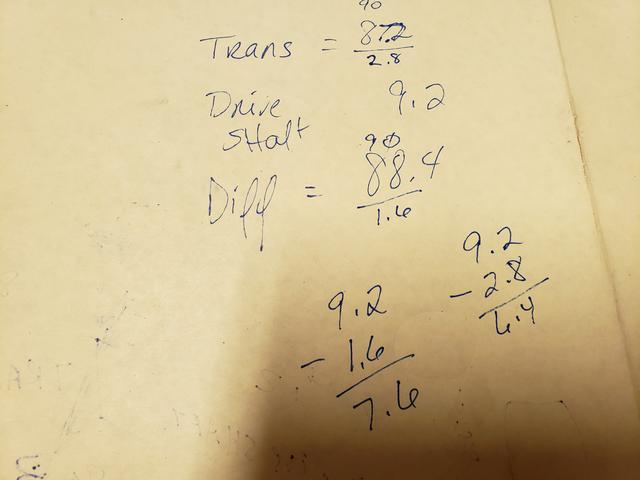 90
Trans = 87.2
2.8
Drive 9.2
Shaft
90
Diff = 88.4
1.6
9.2
- 2.8
6.4
9.2
- 1.6
7.6